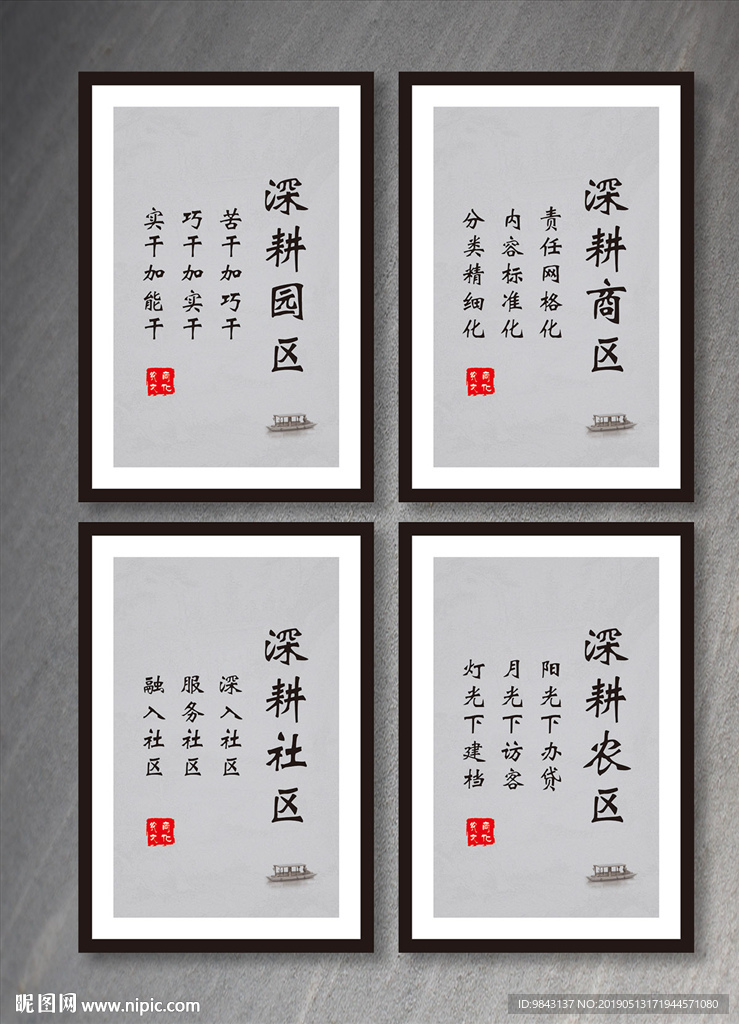 深耕园区
苦干加巧干
巧干加实干
实干加能干
深耕商区
责任网格化
内容标准化
分类精细化
深耕社区
深入社区
服务社区
融入社区
深耕农区
阳光下办贷
月光下访客
灯光下建档
昵图网 www.nipic.com
ID:9843137 NO:20190513171944571080